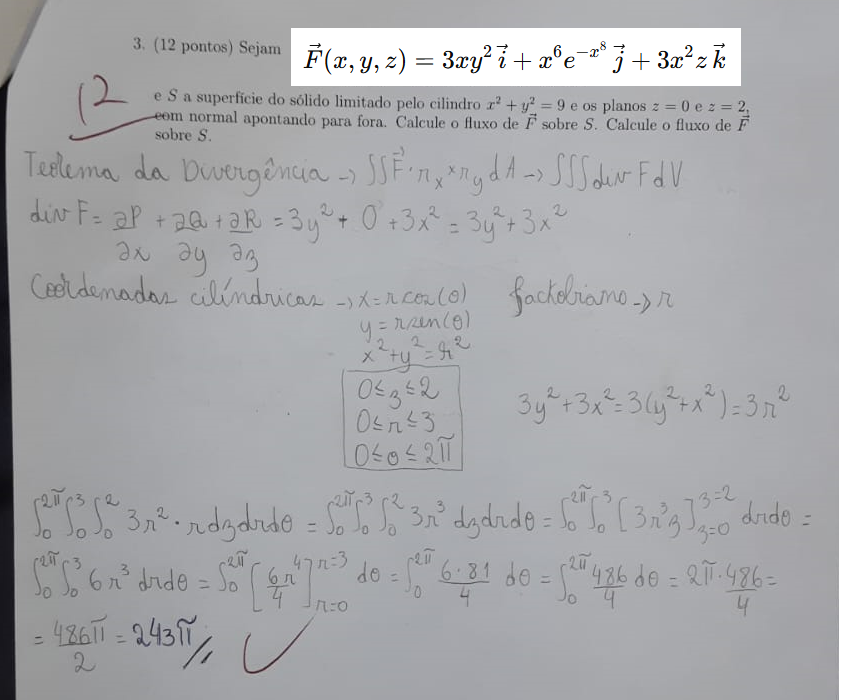 3. (12 pontos) Sejam F⃗(x, y, z) = 3xy² i⃗ + x⁶e^(−x⁸) j⃗ + 3x²z k⃗
12
e S a superfície do sólido limitado pelo cilindro x² + y² = 9 e os planos z = 0 e z = 2,
com normal apontando para fora. Calcule o fluxo de F⃗ sobre S. Calcule o fluxo de F⃗
sobre S.
Teorema da Divergência → ∬F⃗ · r_x × r_y dA → ∭ div F dV
div F = ∂P/∂x + ∂Q/∂y + ∂R/∂z = 3y² + 0 + 3x² = 3y² + 3x²
Coordenadas cilíndricas → x = r cos(θ) Jackobiano → r
y = r sen(θ)
x² + y² = r²
0 ≤ z ≤ 2
0 ≤ r ≤ 3
0 ≤ θ ≤ 2π
3y² + 3x² = 3(y² + x²) = 3r²
∫₀^2π ∫₀^3 ∫₀^2 3r² · r dz dr dθ = ∫₀^2π ∫₀^3 ∫₀^2 3r³ dz dr dθ = ∫₀^2π ∫₀^3 [3r³z]_{z=0}^{z=2} dr dθ =
∫₀^2π ∫₀^3 6r³ dr dθ = ∫₀^2π [6r⁴/4]_{r=0}^{r=3} dθ = ∫₀^2π 6·81/4 dθ = ∫₀^2π 486/4 dθ = 2π · 486/4 =
= 486π/2 = 243π //